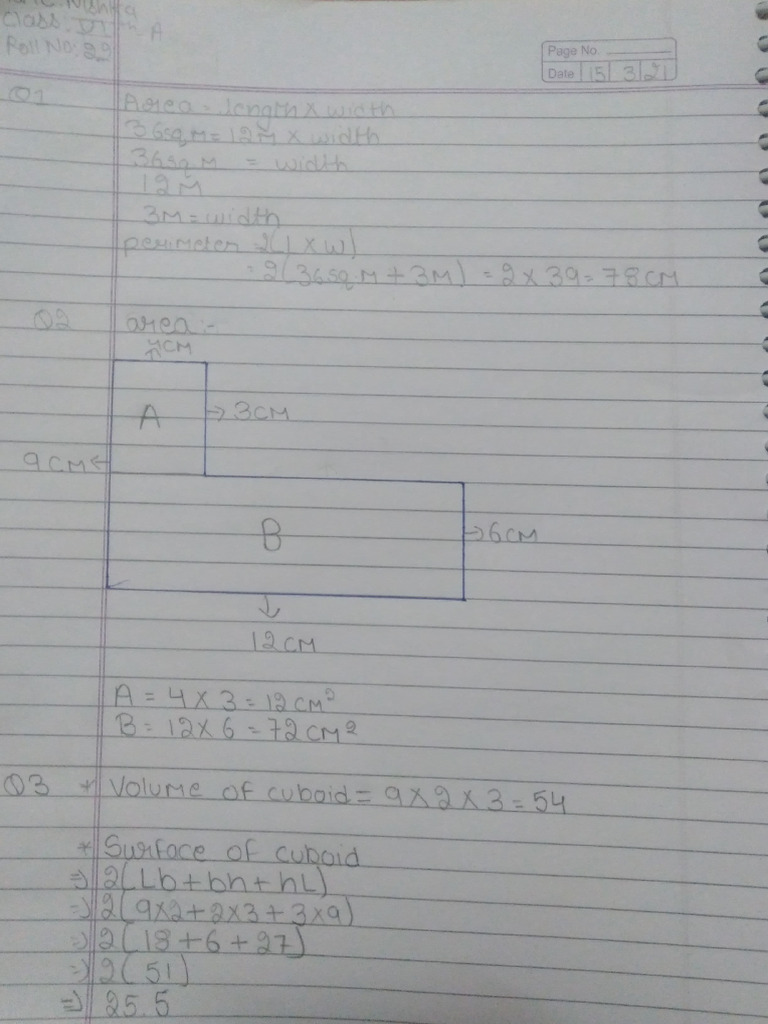 Class: VI A
Roll No: 22
Page No.
Date 15 3 21
Q1 Area = length x width
36sq.M = 12M x width
36sq.M = width
12M
3M = width
perimeter = 2(l x w)
= 2(36sq.M + 3M) = 2 x 39 = 78CM
Q2 area:-
4CM
A → 3CM
9CM ←
B → 6CM
↓
12CM
A = 4 x 3 = 12CM²
B = 12 x 6 = 72CM²
Q3 * Volume of cuboid = 9 x 2 x 3 = 54
* Surface of cuboid
⇒ 2(Lb + bh + hL)
⇒ 2(9x2 + 2x3 + 3x9)
⇒ 2(18 + 6 + 27)
⇒ 2(51)
⇒ 25.5